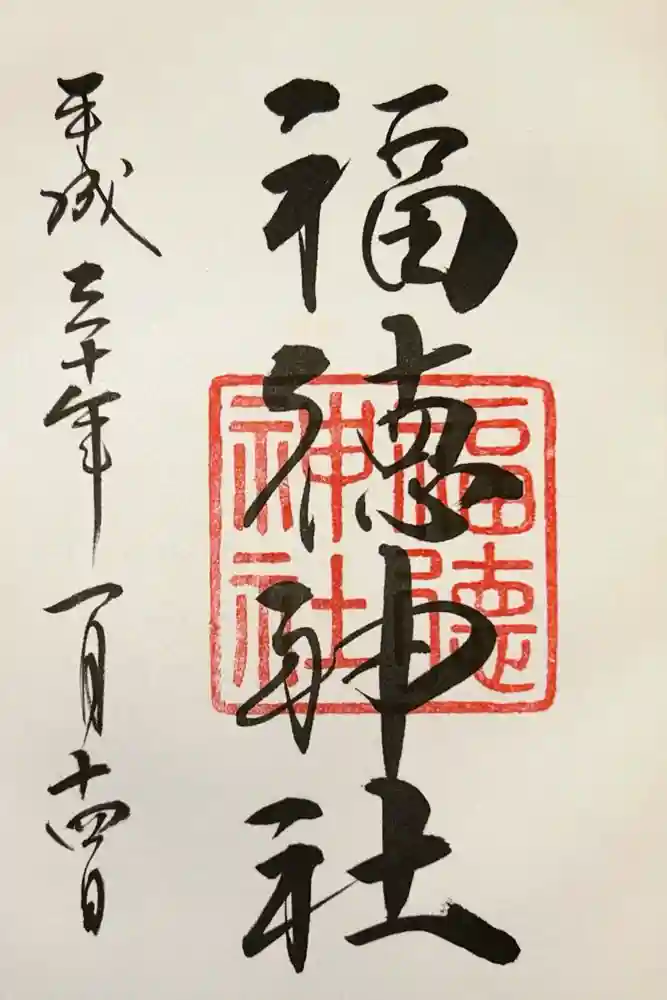 福徳神社
福徳
神社
平成三十年一月十四日